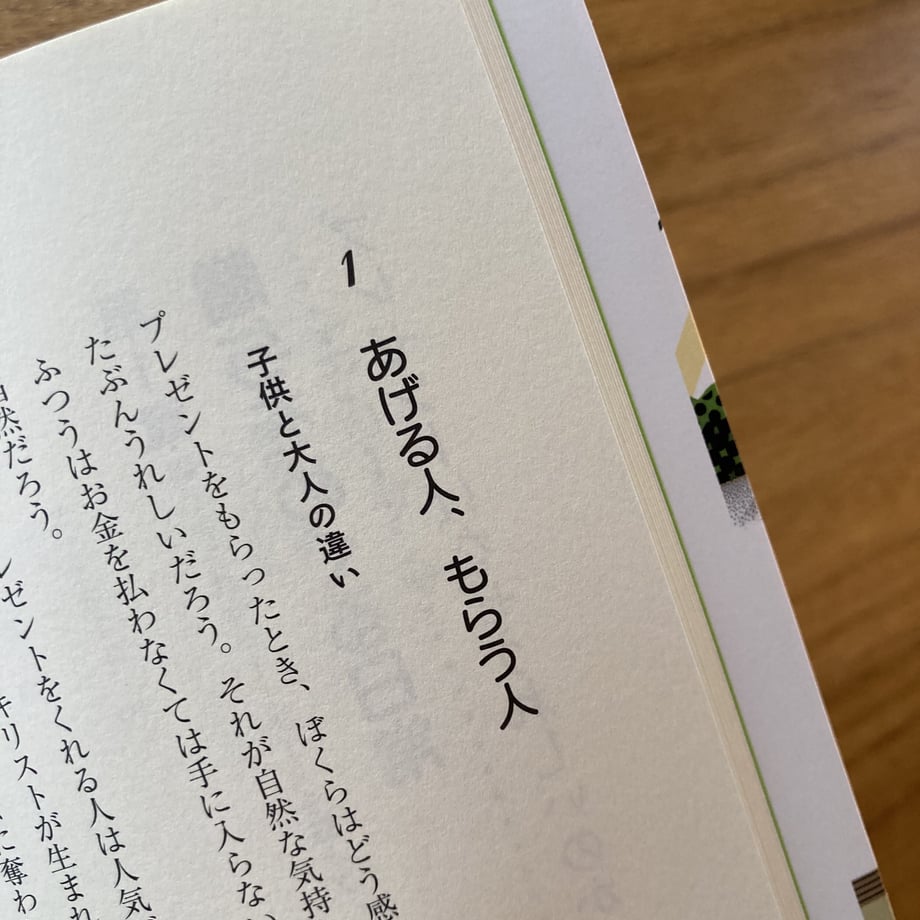 1
あげる人、もらう人
子供と大人の違い
プレゼントをもらったとき、ぼくらはどう感
たぶんうれしいだろう。それが自然な気持
ふつうはお金を払わなくては手に入らない
自然だろう。
レゼントをくれる人は人気
キリストが生まれ
に奪わ